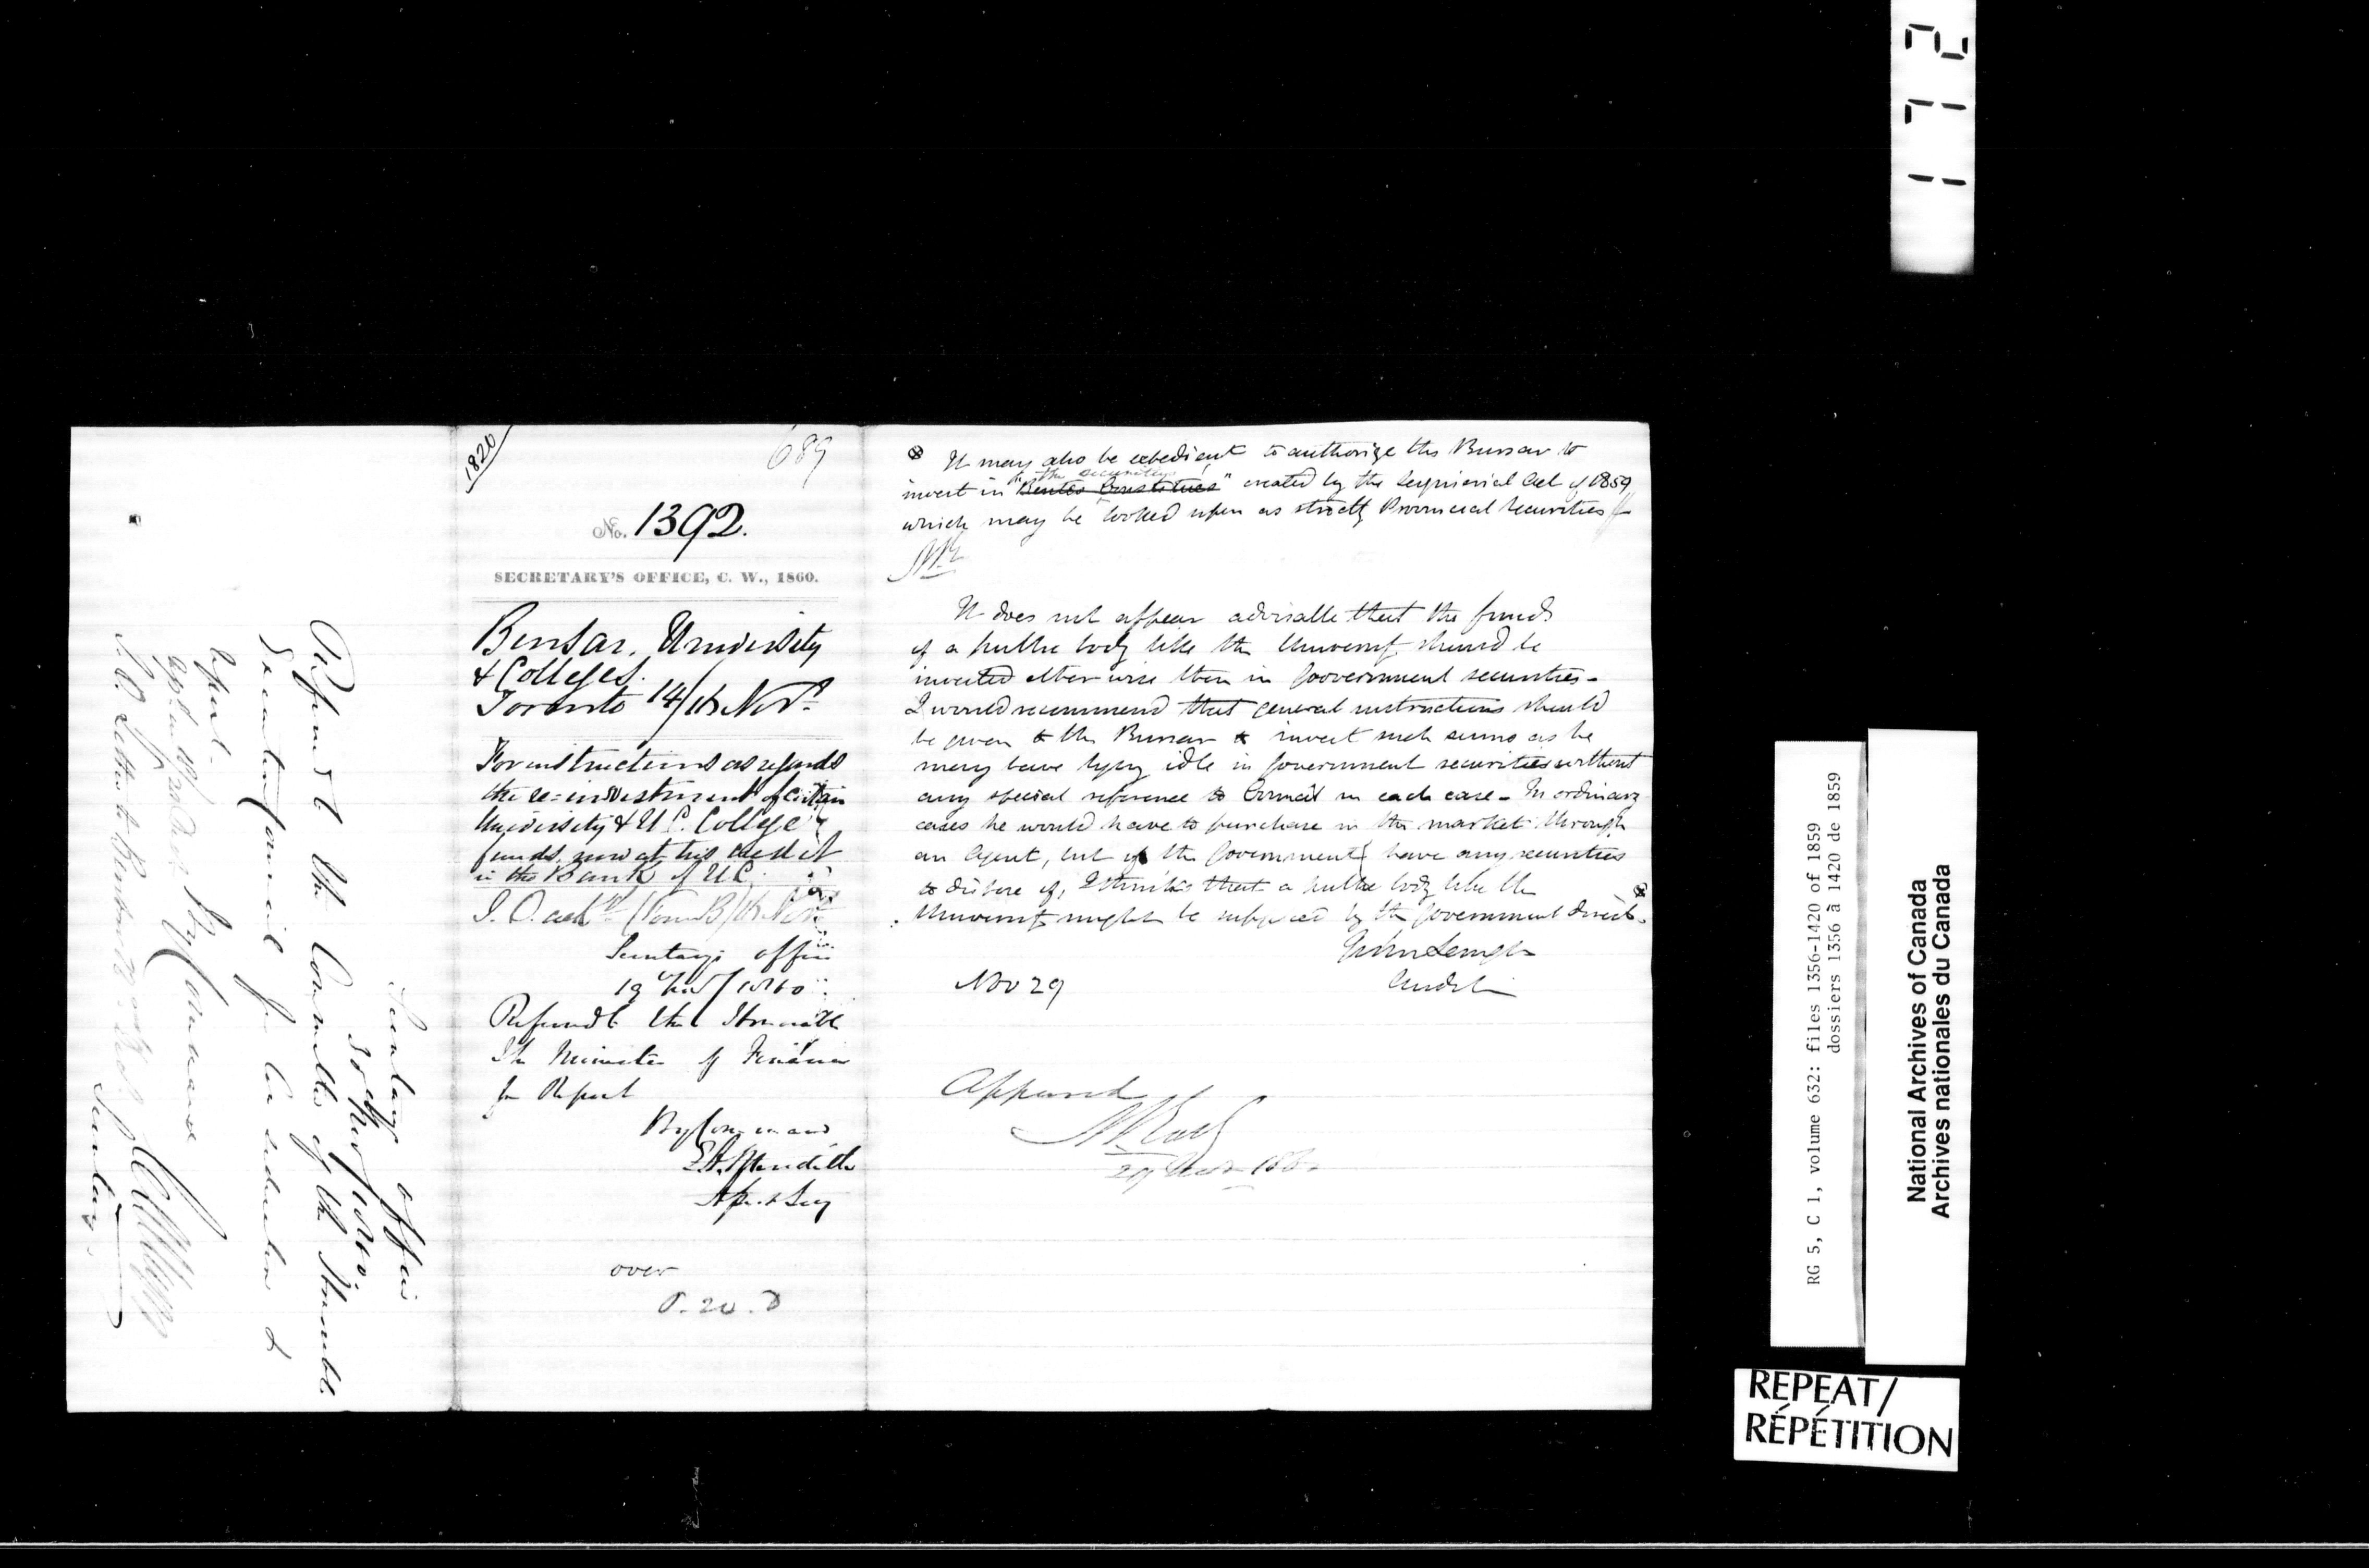 1820
689
No. 1392.
SECRETARY'S OFFICE, C. W., 1860.
Bursar, University
& Colleges.
Toronto 14/16 Novr.
For instructions as regards
the re=investment of certain
University & U.C. College
funds, now at his credit
in the Bank of U.C.
Secretary's office
19 Novr / 1860
Referred to the Honorable
The Minister of Finance
for Report
By Command
E.A. Meredith
Asst Secy
over
⊗ It may also be expedient to authorize the Bursar to
invest in the securities "Rentes Constituées" created by the Seigniorial Act of 1859
which may be looked upon as strictly Provincial Securities
It does not appear advisable that the funds
of a public body like the University should be
invested otherwise than in Government securities -
I would recommend that general instructions should
be given to the Bursar to invest such sums as he
may have lying idle in Government securities without
any special reference to Council in each case - In ordinary
cases he would have to purchase in the market through
an agent, but if the Government have any securities
to dispose of, I think that a public body like the ⊗
University might be supplied by the Government direct.
John Langton
Auditor
Nov 29
Approved
29 Nov 1860
Secretary's office
Referred to the Committee of the Honorable
Executive Council for consideration &
report.
By Command
Secretary.
172
RG 5, C 1, volume 632: files 1356-1420 of 1859
dossiers 1356 à 1420 de 1859
National Archives of Canada
Archives nationales du Canada
REPEAT/
RÉPÉTITION